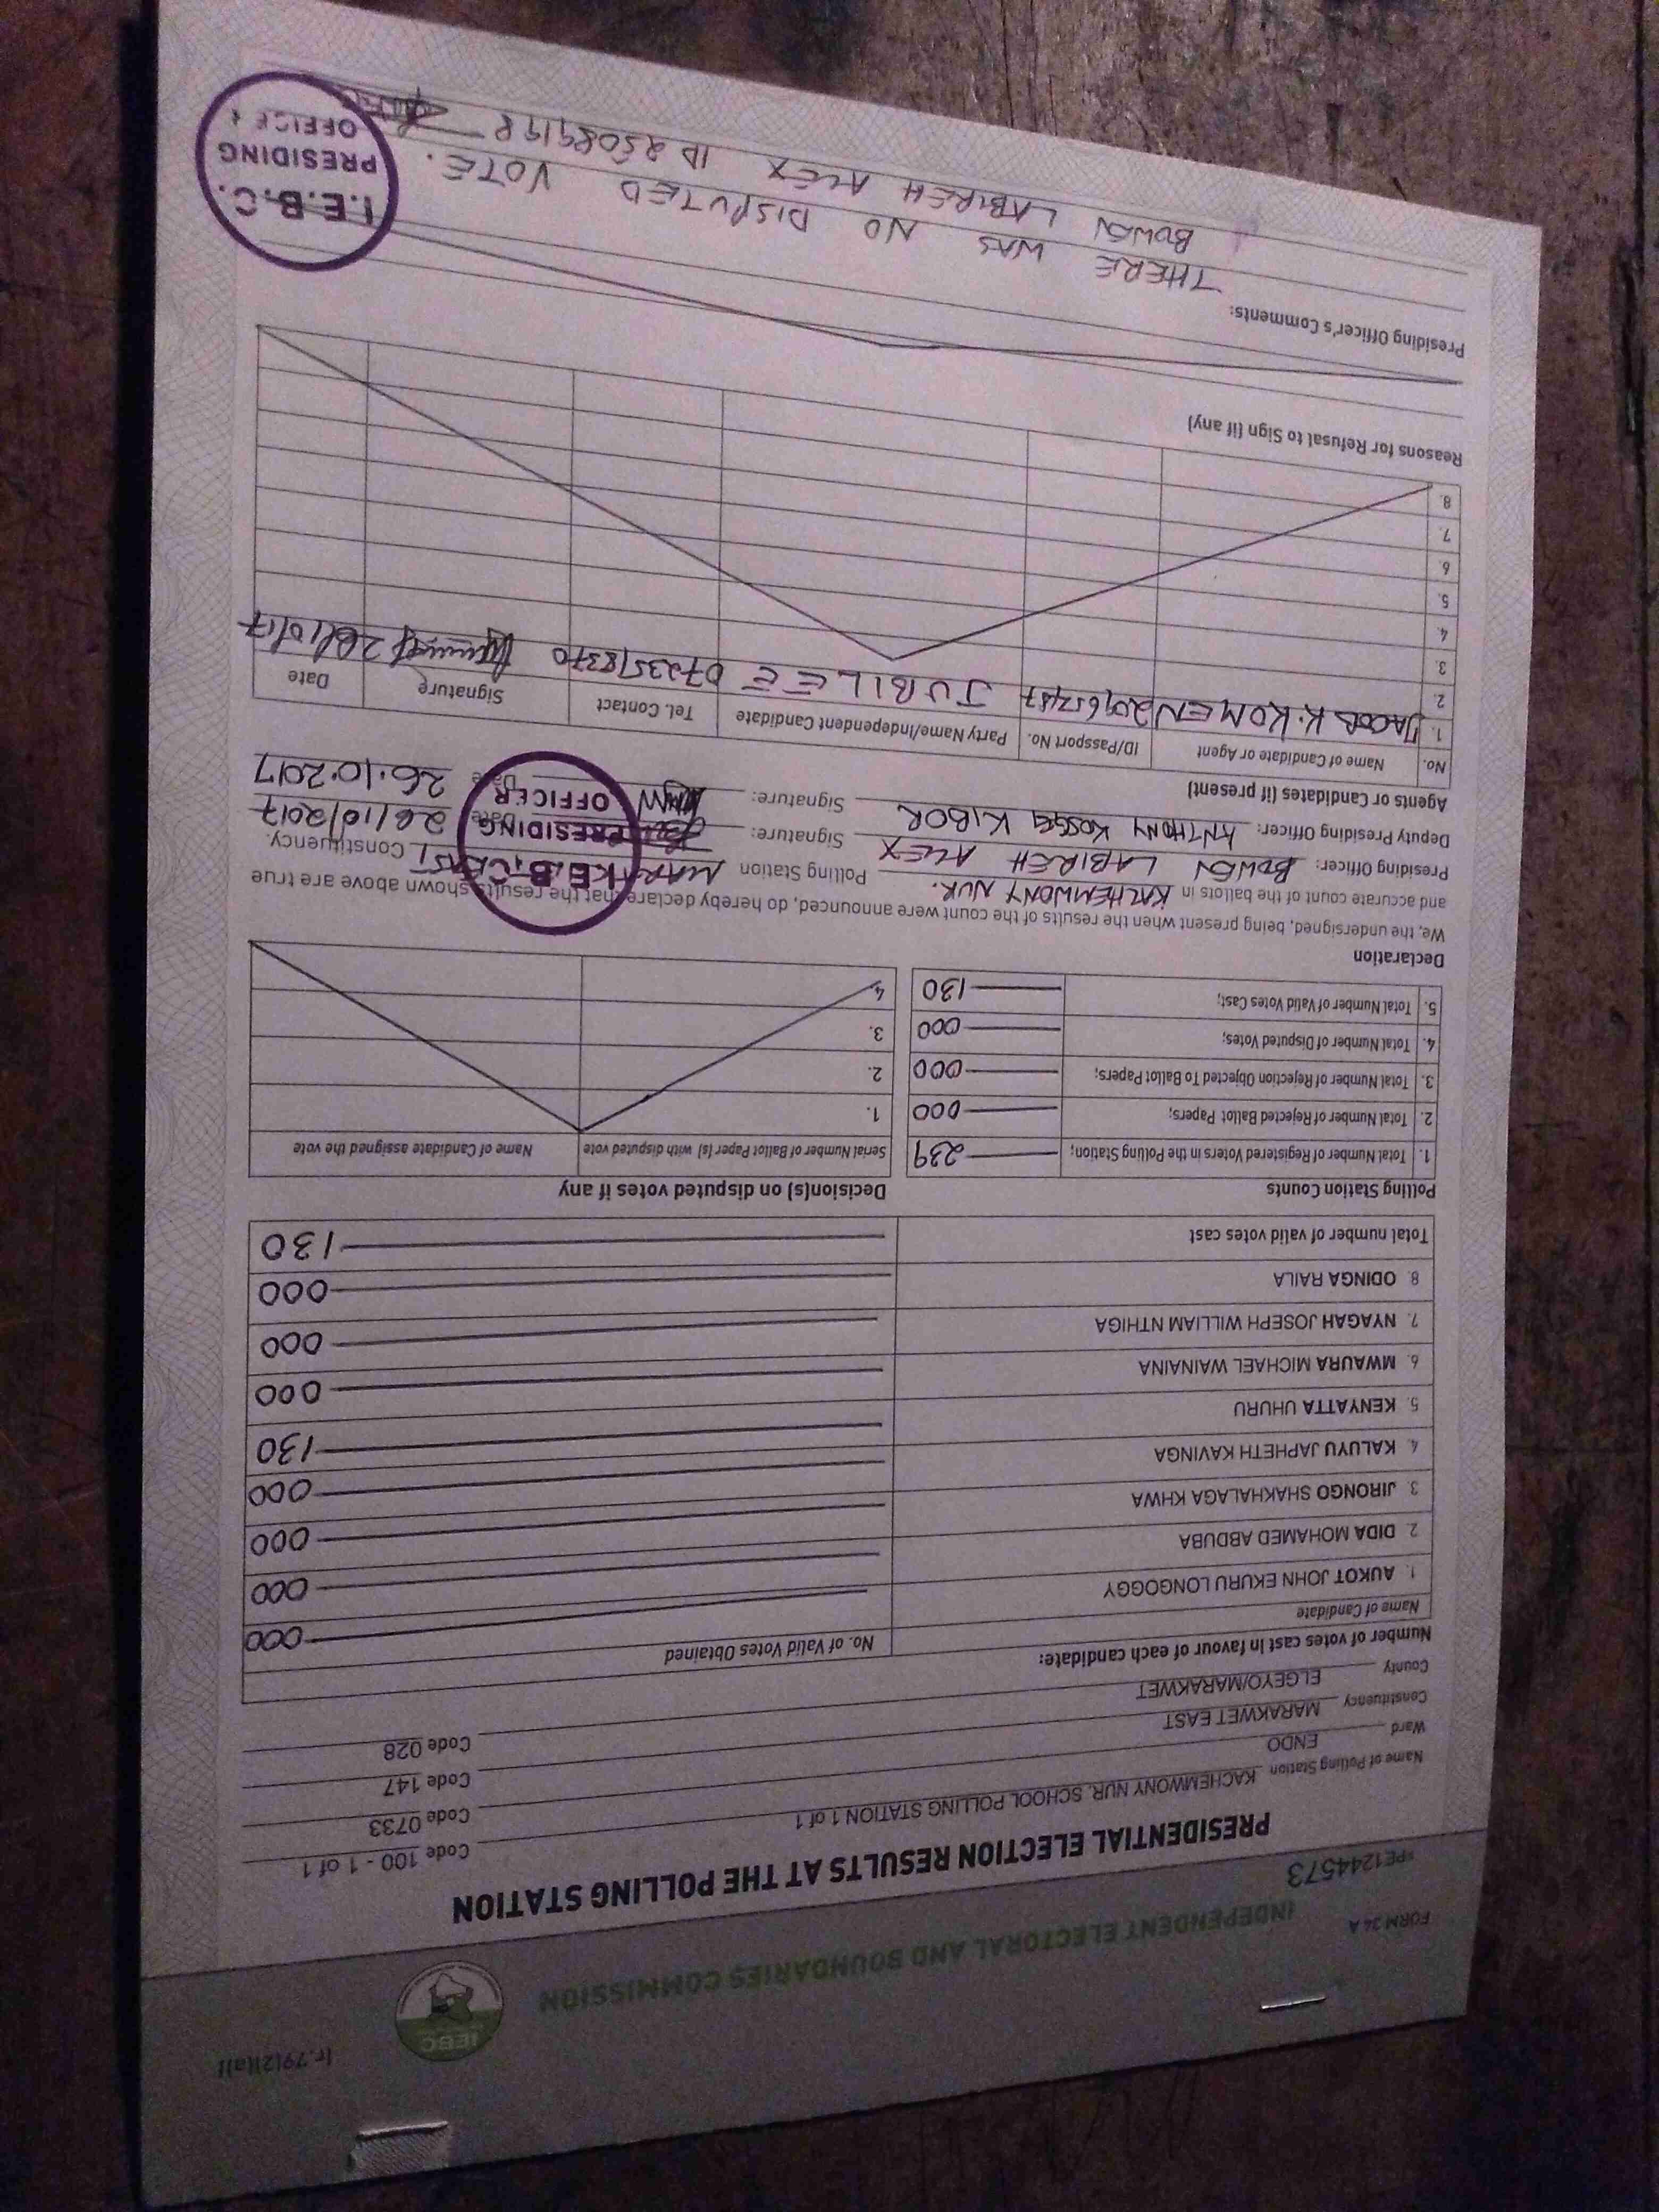 (r.79(2)(a))
FORM 34 A
INDEPENDENT ELECTORAL AND BOUNDARIES COMMISSION
IEBC
PE1244573
PRESIDENTIAL ELECTION RESULTS AT THE POLLING STATION
Name of Polling Station KACHEMWONY NUR. SCHOOL POLLING STATION 1 of 1 Code 100 - 1 of 1
Ward ENDO Code 0733
Constituency MARAKWET EAST Code 147
County ELGEYO/MARAKWET Code 028
Number of votes cast in favour of each candidate:
Name of Candidate No. of Valid Votes Obtained
1. AUKOT JOHN EKURU LONGOGGY 000
2. DIDA MOHAMED ABDUBA 000
3 JIRONGO SHAKHALAGA KHWA 000
4 KALUYU JAPHETH KAVINGA 000
5. KENYATTA UHURU 130
6. MWAURA MICHAEL WAINAINA 000
7. NYAGAH JOSEPH WILLIAM NTHIGA 000
8. ODINGA RAILA 000
Total number of valid votes cast 130
Polling Station Counts
1. Total Number of Registered Voters in the Polling Station; 239
2. Total Number of Rejected Ballot Papers; 000
3. Total Number of Rejection Objected To Ballot Papers; 000
4. Total Number of Disputed Votes; 000
5. Total Number of Valid Votes Cast; 130
Decision(s) on disputed votes if any
Serial Number of Ballot Paper (s) with disputed vote Name of Candidate assigned the vote
1.
2.
3.
4.
Declaration
We, the undersigned, being present when the results of the count were announced, do hereby declare that the results shown above are true
and accurate count of the ballots in KACHEMWONY NUR. Polling Station MARAKWET EAST Constituency.
Presiding Officer: BOWEN LABIREH ALEX Signature: Date 26/10/2017
Deputy Presiding Officer: ANTHONY KOSGEI KIBOR Signature: Date 26.10.2017
I.E.B.C.
PRESIDING
OFFICER
Agents or Candidates (if present)
No. Name of Candidate or Agent ID/Passport No. Party Name/Independent Candidate Tel. Contact Signature Date
1. JACOB K. KOMEN JUBILEE 0723518370 26/10/17
2.
3.
4.
5.
6
7.
8.
Reasons for Refusal to Sign (if any)
Presiding Officer's Comments:
THERE WAS NO DISPUTED VOTE.
BOWEN LABIREH ALEX ID 25089198
I.E.B.C.
PRESIDING
OFFICER